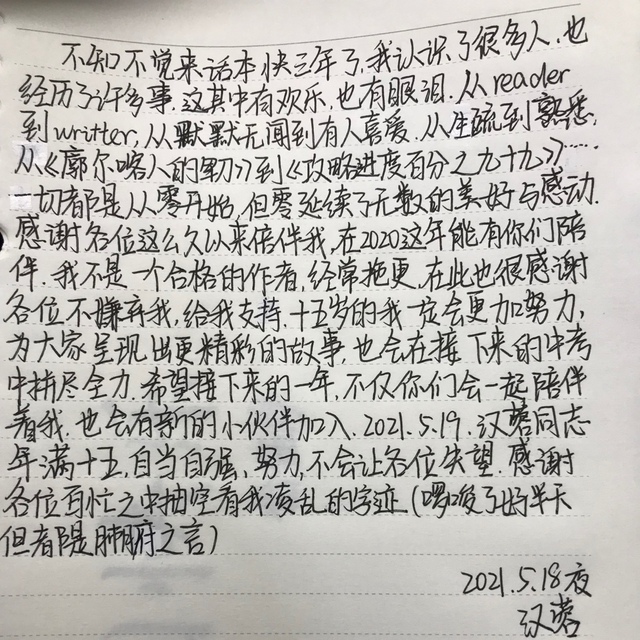 不知不觉来话本快三年了,我认识了很多人,也
经历了许多事.这其中有欢乐,也有眼泪.从reader
到writter,从默默无闻到有人喜爱.从生疏到熟悉,
从《廓尔喀人的军刀》到《攻略进度百分之九十九》……
一切都是从零开始,但零延续了无数的美好与感动.
感谢各位这么久以来陪伴我,在2020这年能有你们陪
伴.我不是一个合格的作者,经常拖更.在此也很感谢
各位不嫌弃我,给我支持.十五岁的我一定会更加努力,
为大家呈现出更精彩的故事,也会在接下来的中考
中拼尽全力.希望接下来的一年,不仅你们会一起陪伴
着我,也会有新的小伙伴加入.2021.5.19.汉蓉同志
年满十五,自当自强、努力,不会让各位失望.感谢
各位百忙之中抽空看我凌乱的字迹(啰嗦了好半天
但都是肺腑之言)
2021.5.18夜
汉蓉